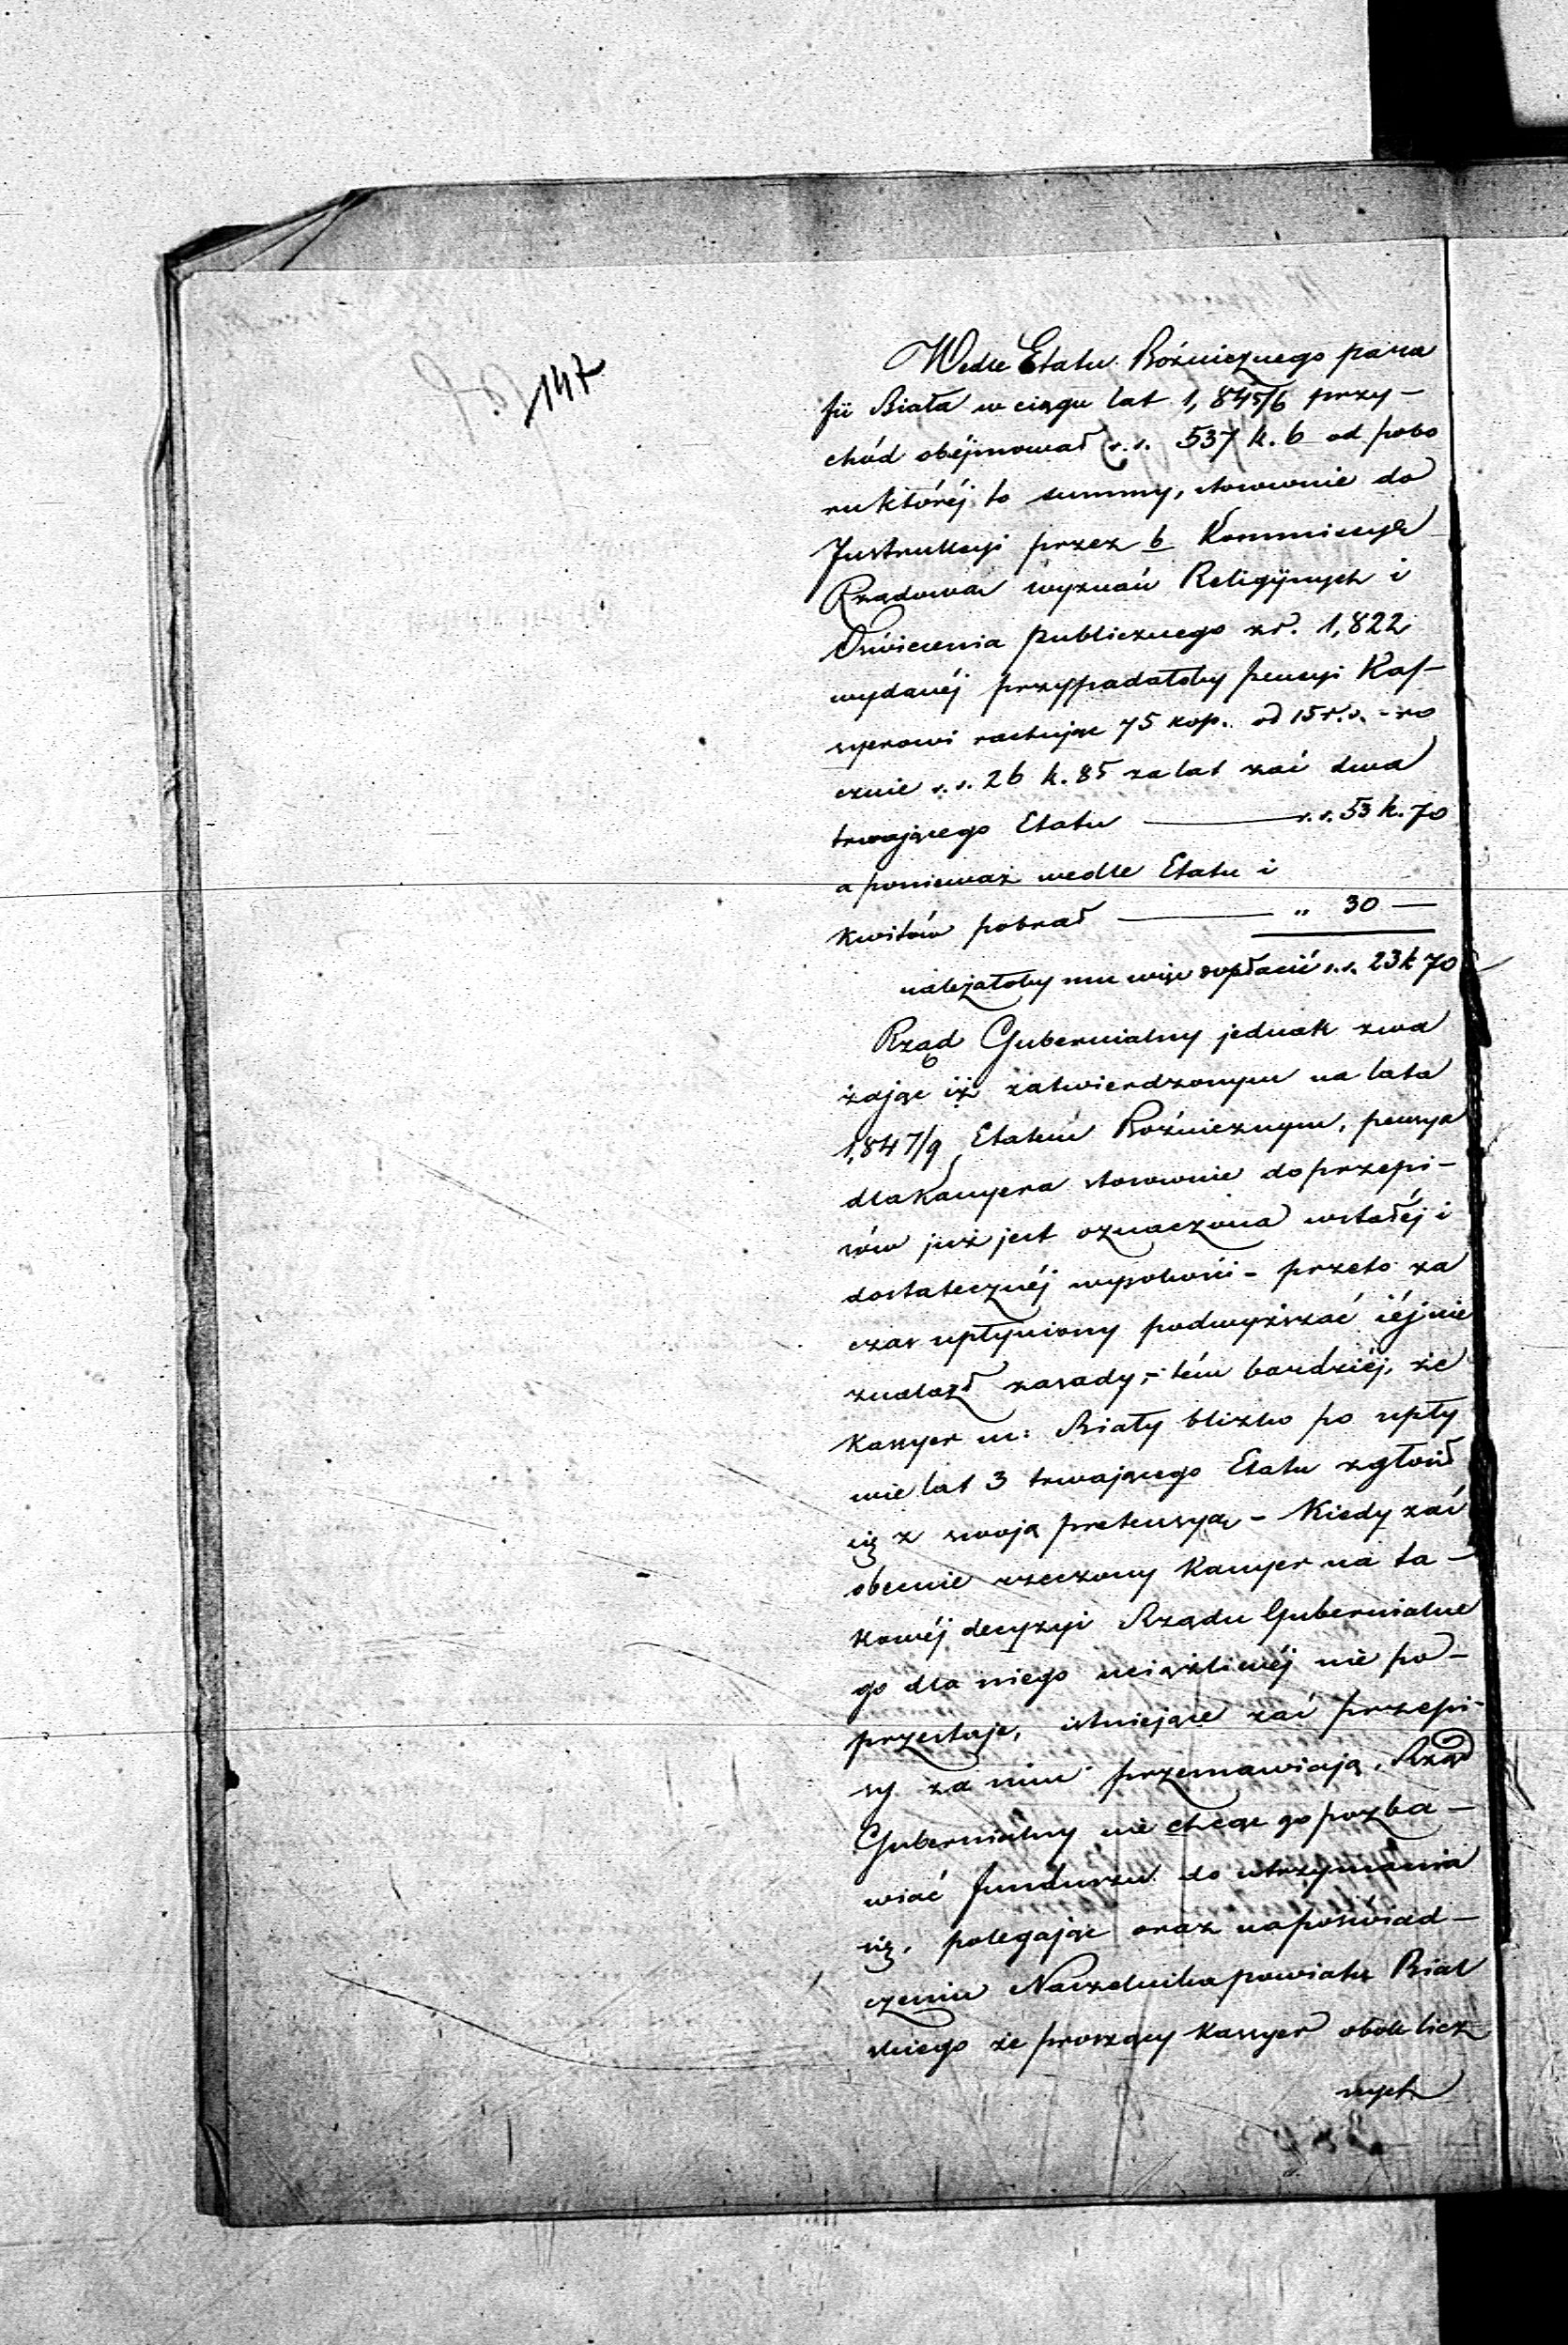 147
Wedle Etatu Bóżniczego para
fii Biała w ciągu lat 1,845/6 przy-
chód obéjmował r.s. 537 k. 6 od pobo
ru któréj to summy, stosownie do
Instrukcyi przez b Kommissyę
Rządową wyznań Religijnych i
Oświecenia publicznego z r. 1,822
wydanéj przypadałoby pensyi Kas-
syerowi rachując 75 kop. od 15 r.s. - ro
cznie r.s. 26 k. 85 za lat zaś dwa
trwającego Etatu — r.s. 53 k. 70
a ponieważ wedle Etatu i
kwitów pobrał — „ 30 —
należałoby mu więc dopłacić r.s. 23 k 70
Rząd Gubernialny jednak zwa
żając iż zatwierdzonym na lata
1,847/9 Etatem Bóżnicznym, pensya
dla Kassyera stosownie do przepi-
sów już jest oznaczona w stałéj i
dostatecznéj wysokości - przeto za
czas upłyniony podwyższać iéj nie
znalazł zasady, - tém bardziéj, że
Kassyer m: Biały blizko po upły
wie lat 3 trwającego Etatu zgłosił
się z swoją pretensyą - Kiedy zaś
obecnie rzeczony Kassyer na ta-
kowéj decyzyi Rządu Gubernialne
go dla niego uciążliwéj nie po-
przestaje, istniejące zaś przepi-
sy za nim przemawiają, Rząd
Gubernialny nie chcąc go pozba-
wiać funduszu do utrzymania
się, polegając oraz na poświad-
czeniu Naczelnika powiatu Bial
skiego że proszący Kassyer obok licz
nych